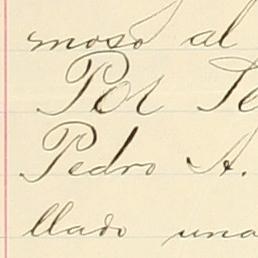 moso al
Por Se
Pedro A.
llado una